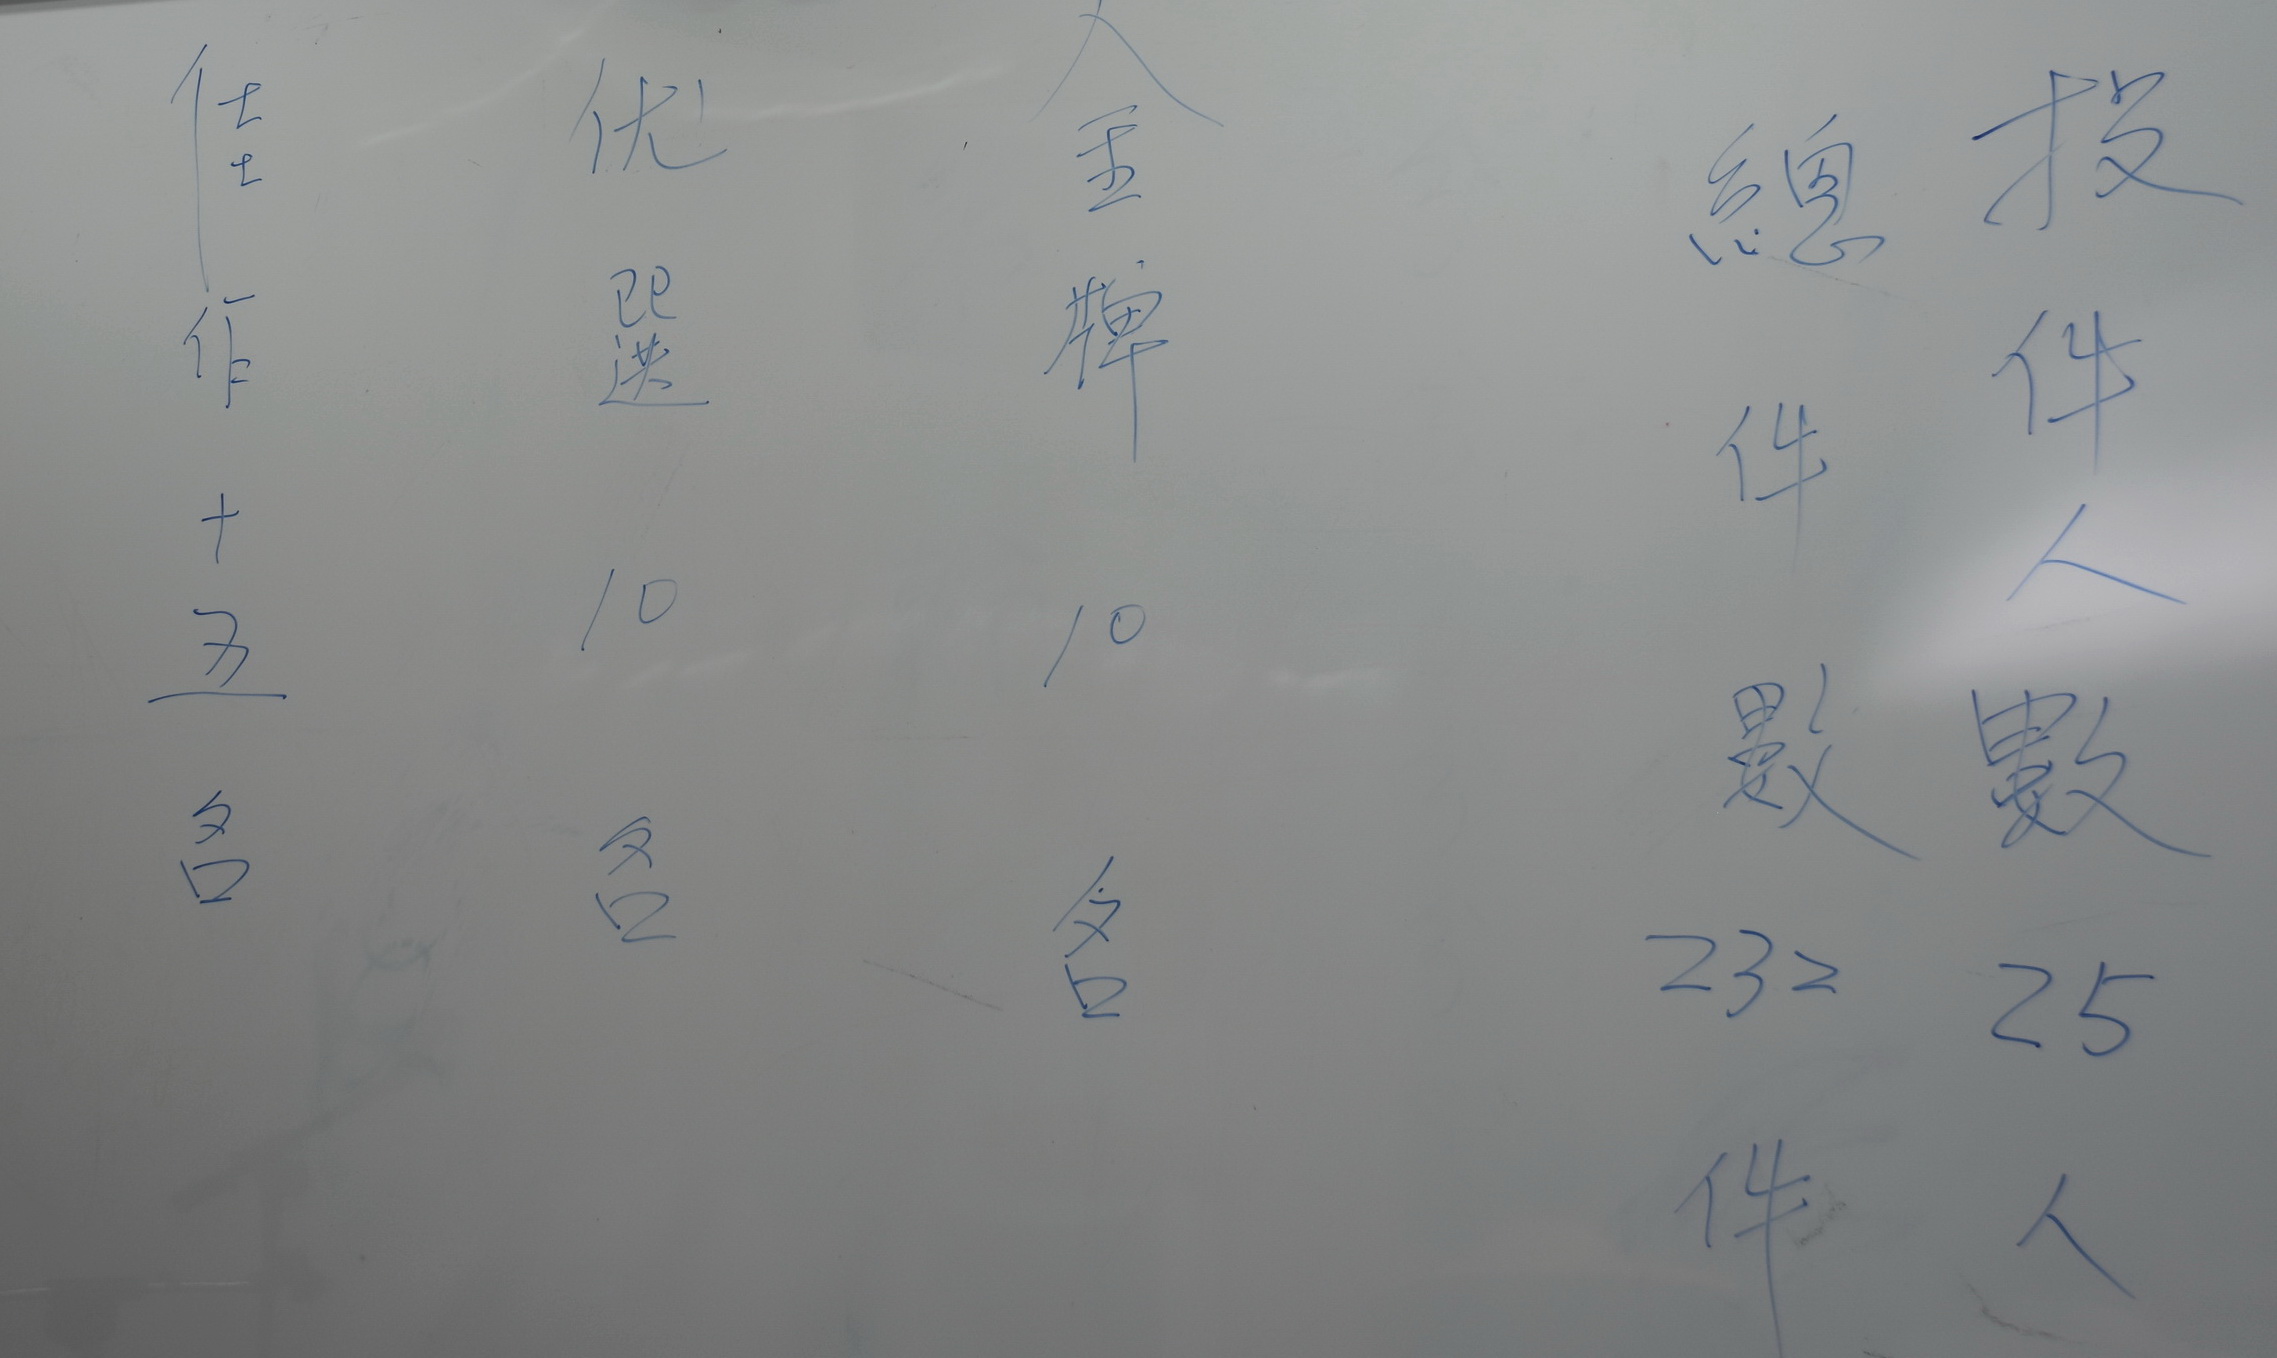 投件人數25人
總件數232件
金牌10名
优選10名
佳作十五名